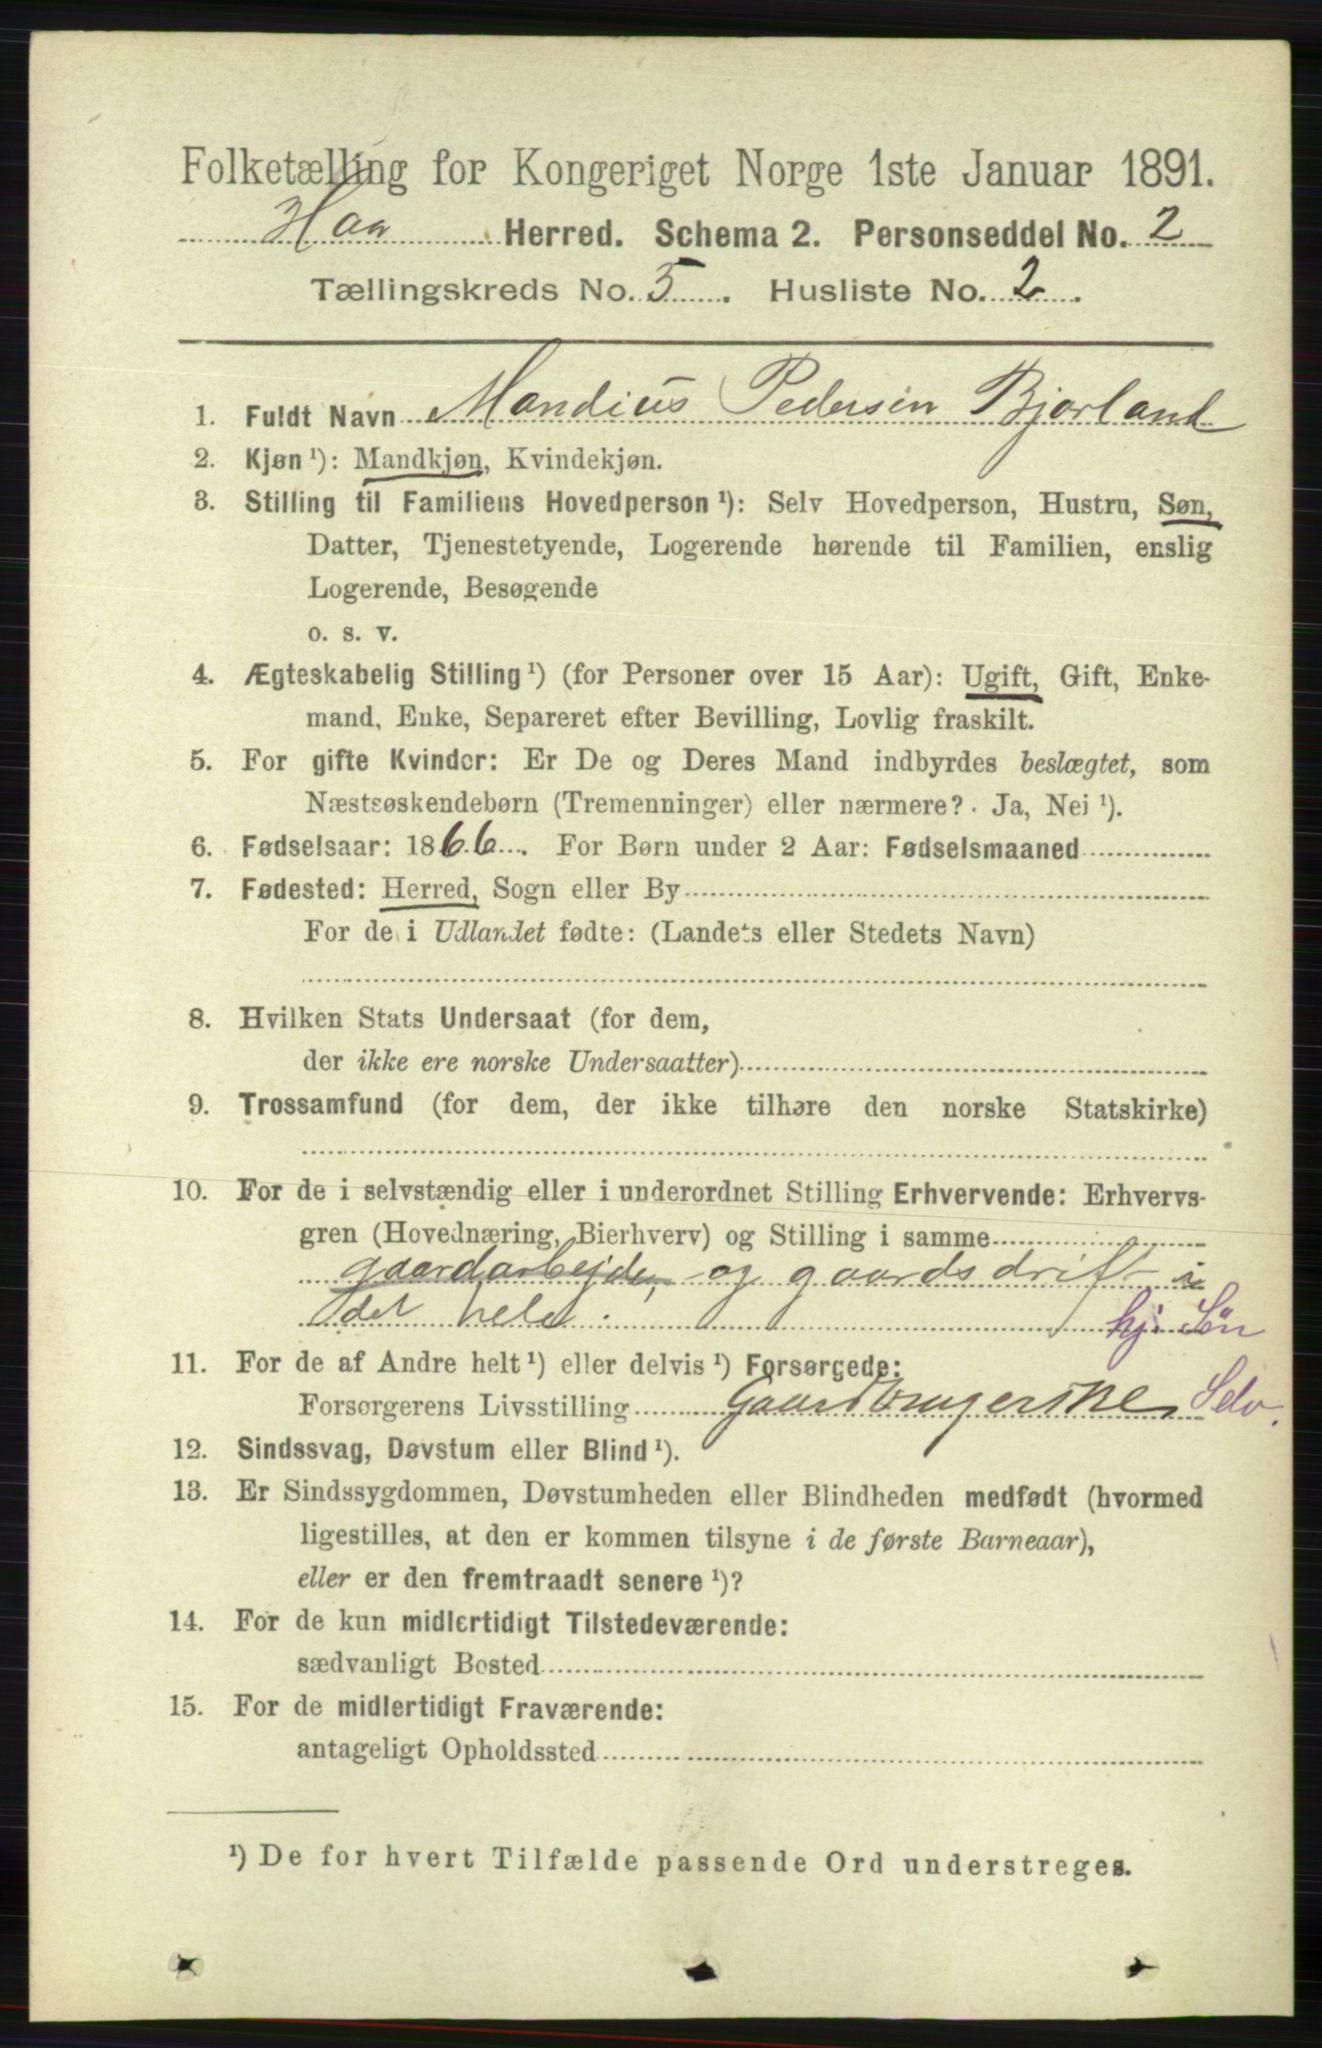 Folketælling for Kongeriget Norge 1ste Januar 1891.
Haa Herred. Schema 2. Personseddel No. 2
Tællingskreds No. 5. Husliste No. 2.
1. Fuldt Navn Mandius Pedersen Bjorland
2. Kjøn ¹): Mandkjøn, Kvindekjøn.
3. Stilling til Familiens Hovedperson ¹): Selv Hovedperson, Hustru, Søn,
Datter, Tjenestetyende, Logerende hørende til Familien, enslig
Logerende, Besøgende
o. s. v.
4. Ægteskabelig Stilling ¹) (for Personer over 15 Aar): Ugift, Gift, Enke-
mand, Enke, Separeret efter Bevilling, Lovlig fraskilt.
5. For gifte Kvinder: Er De og Deres Mand indbyrdes beslægtet, som
Næstsøskendebørn (Tremenninger) eller nærmere? Ja, Nei ¹).
6. Fødselsaar: 1866. For Børn under 2 Aar: Fødselsmaaned
7. Fødested: Herred, Sogn eller By
For de i Udlandet fødte: (Landets eller Stedets Navn)
8. Hvilken Stats Undersaat (for dem,
der ikke ere norske Undersaatter)
9. Trossamfund (for dem, der ikke tilhøre den norske Statskirke)
10. For de i selvstændig eller i underordnet Stilling Erhvervende: Erhvervs-
gren (Hovednæring, Bierhverv) og Stilling i samme
gaardarbejde, og gaardsdrift i
det hele. hj. Søn
11. For de af Andre helt ¹) eller delvis ¹) Forsørgede:
Forsørgerens Livsstilling Gaardbrugerske, Selv.
12. Sindssvag, Døvstum eller Blind ¹).
13. Er Sindssygdommen, Døvstumheden eller Blindheden medfødt (hvormed
ligestilles, at den er kommen tilsyne i de første Barneaar),
eller er den fremtraadt senere ¹)?
14. For de kun midlertidigt Tilstedeværende:
sædvanligt Bosted
15. For de midlertidigt Fraværende:
antageligt Opholdssted
¹) De for hvert Tilfælde passende Ord understreges.